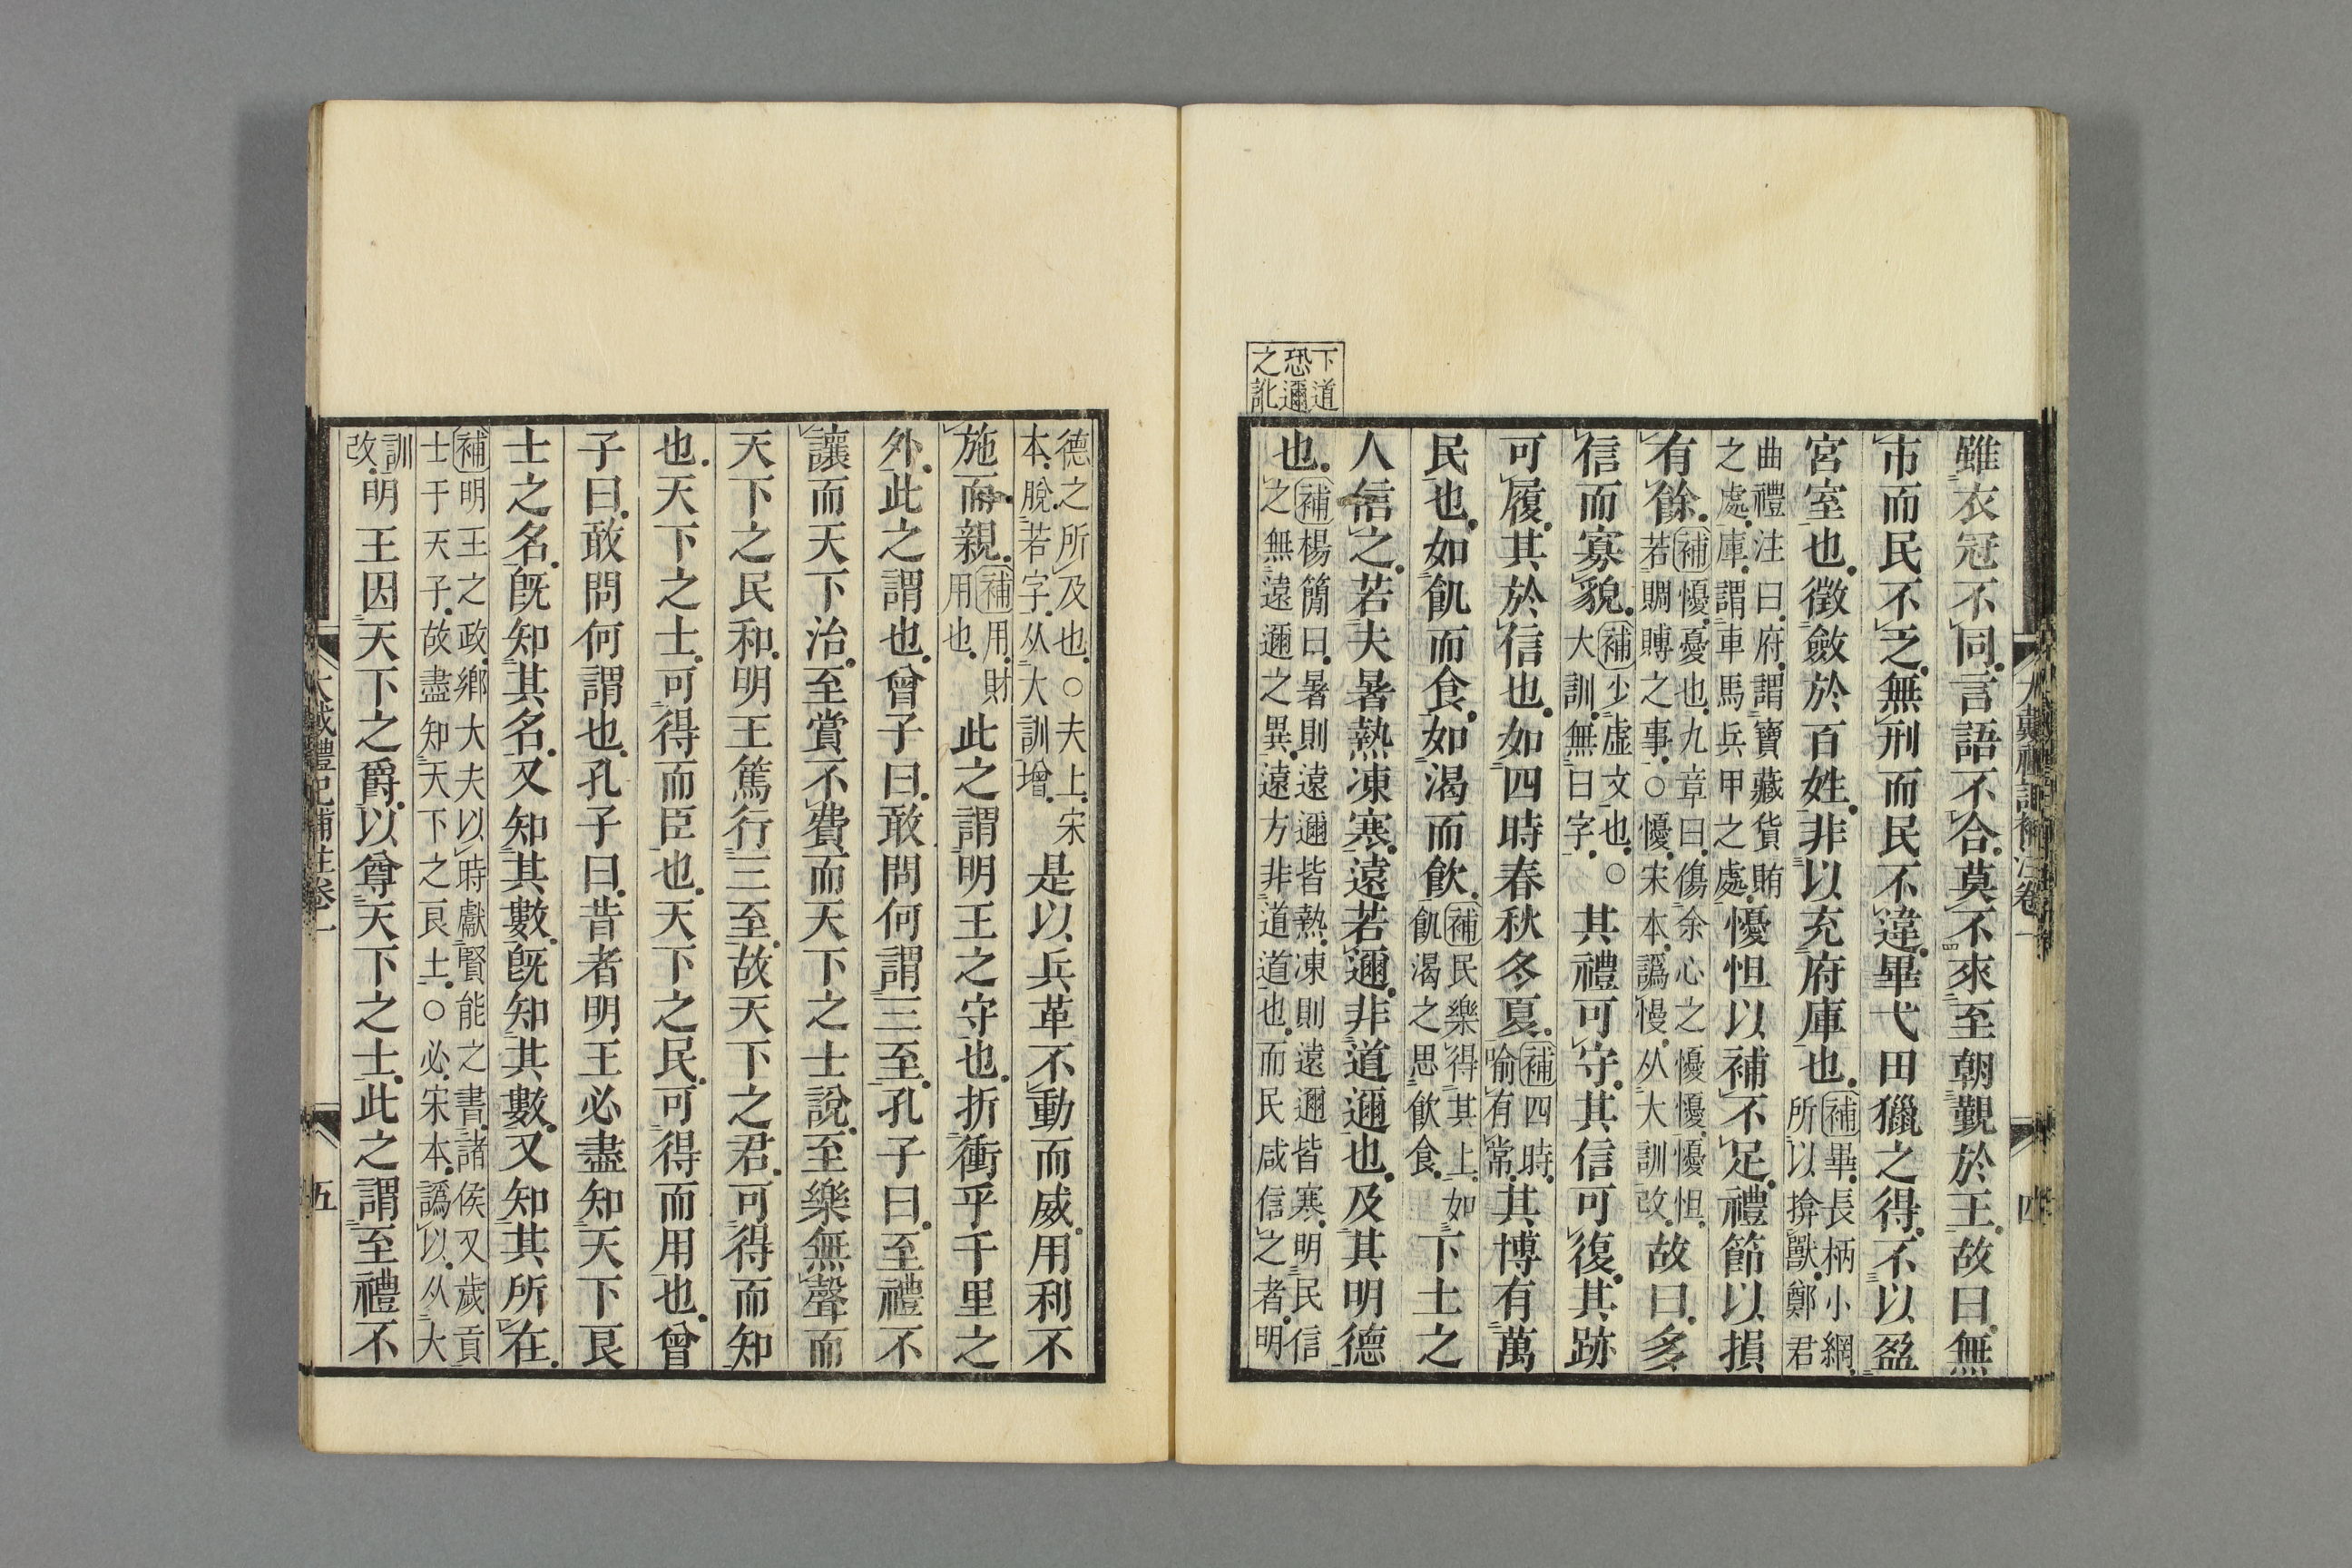 雖衣冠不同言語不合莫不來至朝覲於王故曰無
市而民不乏無刑而民不違畢弋田獵之得不以盈
宮室也徵斂於百姓非以充府庫也補畢長柄小網
所以揜獸鄭君
曲禮注曰府謂寶藏貨賄
之處庫謂車馬兵甲之處慢怛以補不足禮節以損
有餘補懮憂也九章曰傷余心之懮懮懮怛
若賙賻之事○懮宋本譌慢从大訓改故曰多
信而寡貌補少虛文也○
大訓無曰字其禮可守其信可復其跡
可履其於信也如四時春秋冬夏補四時
喻有常其博有萬
民也如飢而食如渴而飲補民樂得其上如
飢渴之思飲食下土之
人信之若夫暑熱凍寒遠若邇非道邇也及其明德
也補楊簡曰暑則遠邇皆熱凍則遠邇皆寒明民信
之無遠邇之異遠方非道道也而民咸信之者明
下道
恐邇
之訛
大戴禮記補注卷一
四
德之所及也○夫上宋
本脫若字从大訓增是以兵革不動而威用利不
施而親補用財
用也此之謂明王之守也折衝乎千里之
外此之謂也曾子曰敢問何謂三至孔子曰至禮不
讓而天下治至賞不費而天下之士說至樂無聲而
天下之民和明王篤行三至故天下之君可得而知
也天下之士可得而臣也天下之民可得而用也曾
子曰敢問何謂也孔子曰昔者明王必盡知天下良
士之名旣知其名又知其數旣知其數又知其所在
補明王之政鄉大夫以時獻賢能之書諸侯又歲貢
士于天子故盡知天下之良士○必宋本譌以从大
訓
改明王因天下之爵以尊天下之士此之謂至禮不
大戴禮記補注卷一
五